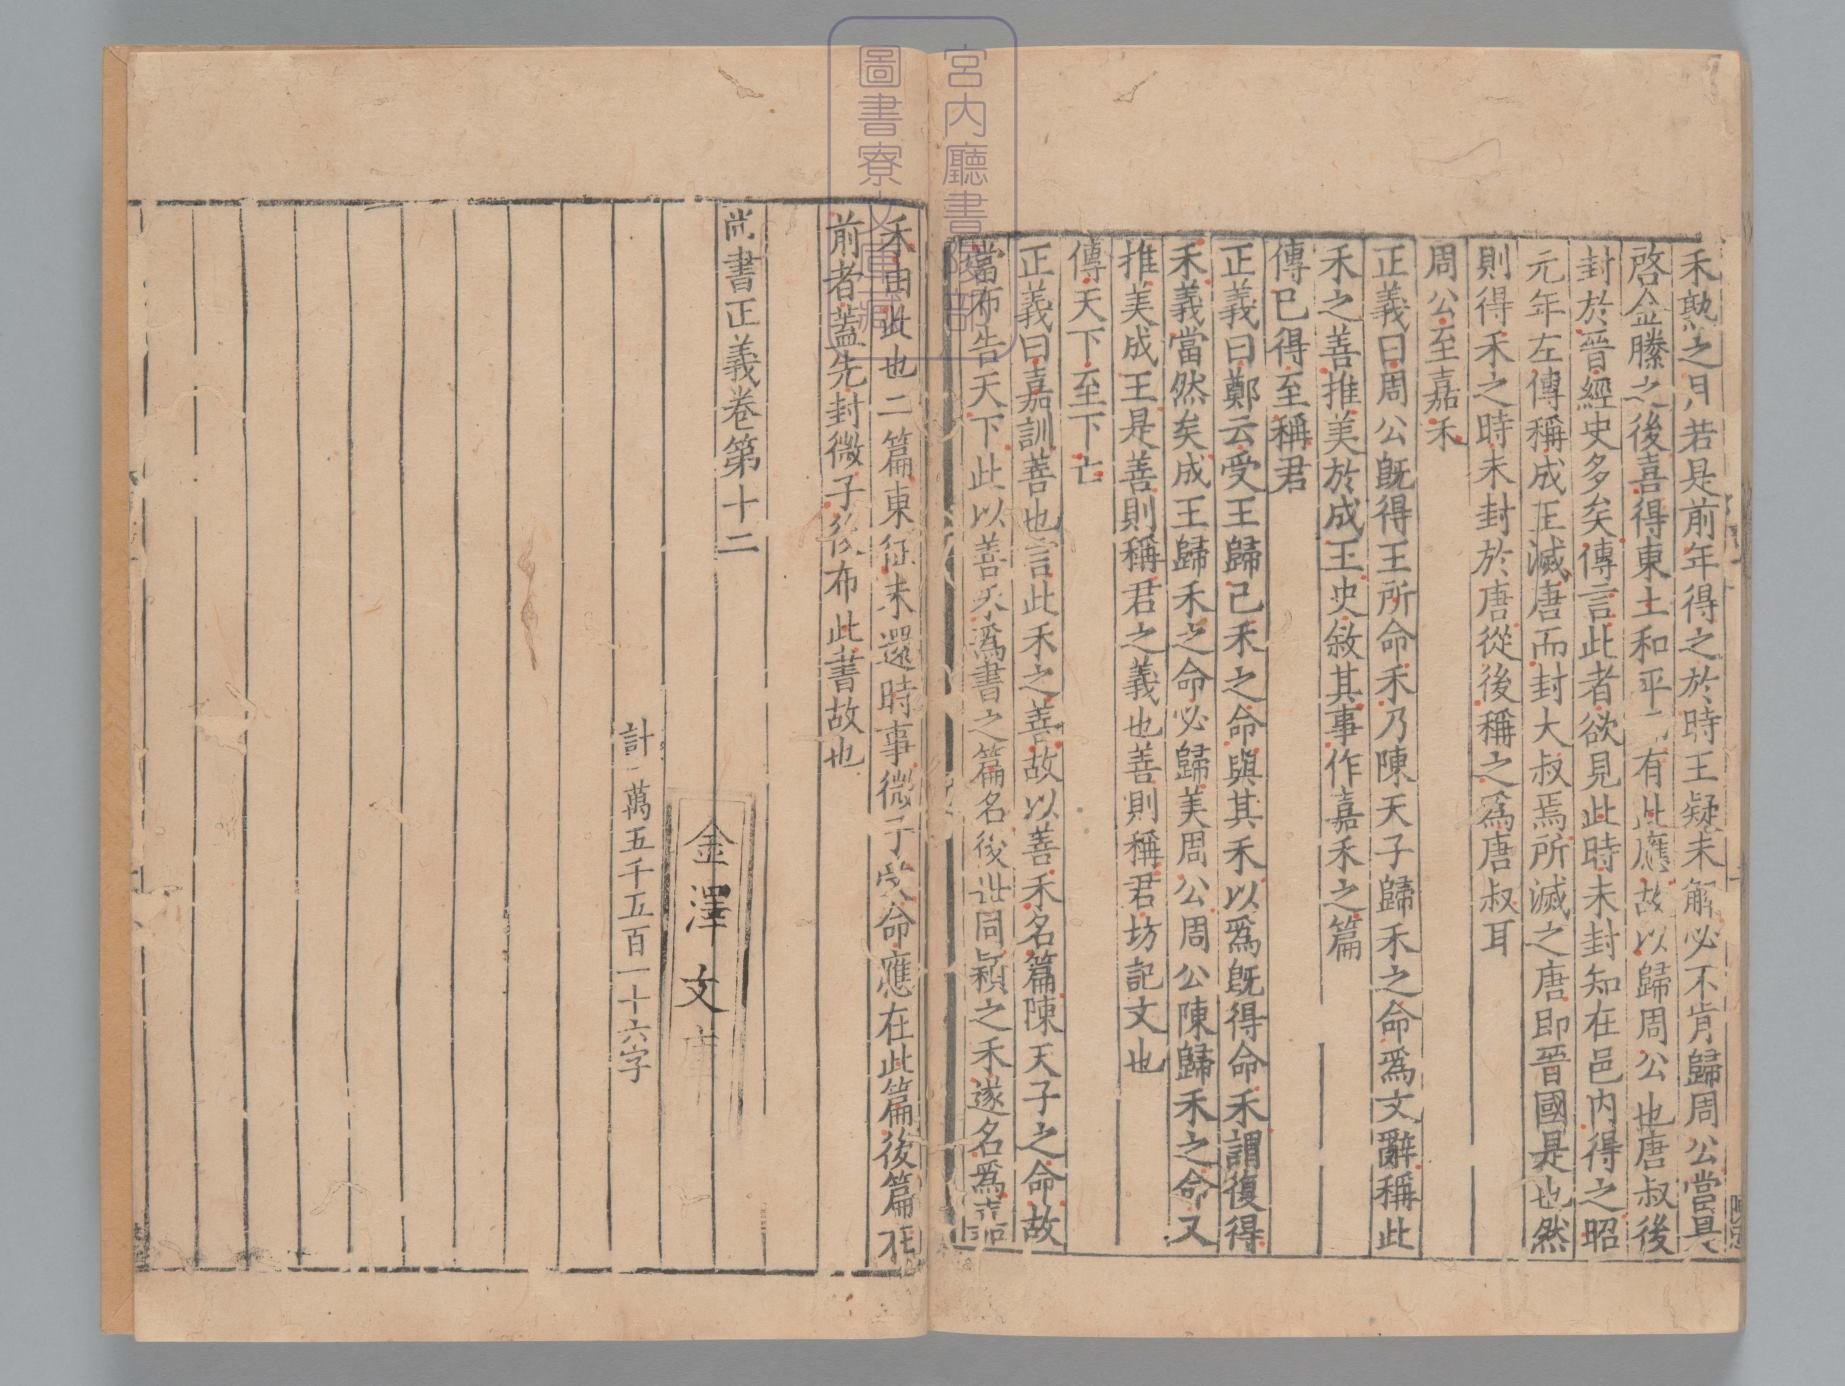 禾熟之月若是前年得之於時王疑未解必不肯歸周公當是
啓金縢之後喜得東土和平而有此應故以歸周公也唐叔後
封於晉經史多矣傳言此者欲見此時未封知在邑内得之昭
元年左傳稱成王滅唐而封大叔焉所滅之唐即晉國是也然
則得禾之時未封於唐從後稱之爲唐叔耳
周公至嘉禾
正義曰周公旣得王所命禾乃陳天子歸禾之命爲文辭稱此
禾之善推美於成王史敘其事作嘉禾之篇
傳已得至稱君
正義曰鄭云受王歸已禾之命與其禾以爲旣得命禾謂復得
禾義當然矣成王歸禾之命必歸美周公周公陳歸禾之命又
推美成王是善則稱君之義也善則稱君坊記文也
傳天下至下亡
正義曰嘉訓善也言此禾之善故以善禾名篇陳天子之命故
當布告天下此以善禾爲書之篇名後世同穎之禾遂名爲嘉
禾由此也二篇東征未還時事微子受命應在此篇後篇在
前者蓋先封微子後布此書故也
尚書正義卷第十二
計一萬五千五百一十六字
金澤文庫
宮内廳書陵部
圖書寮文庫藏